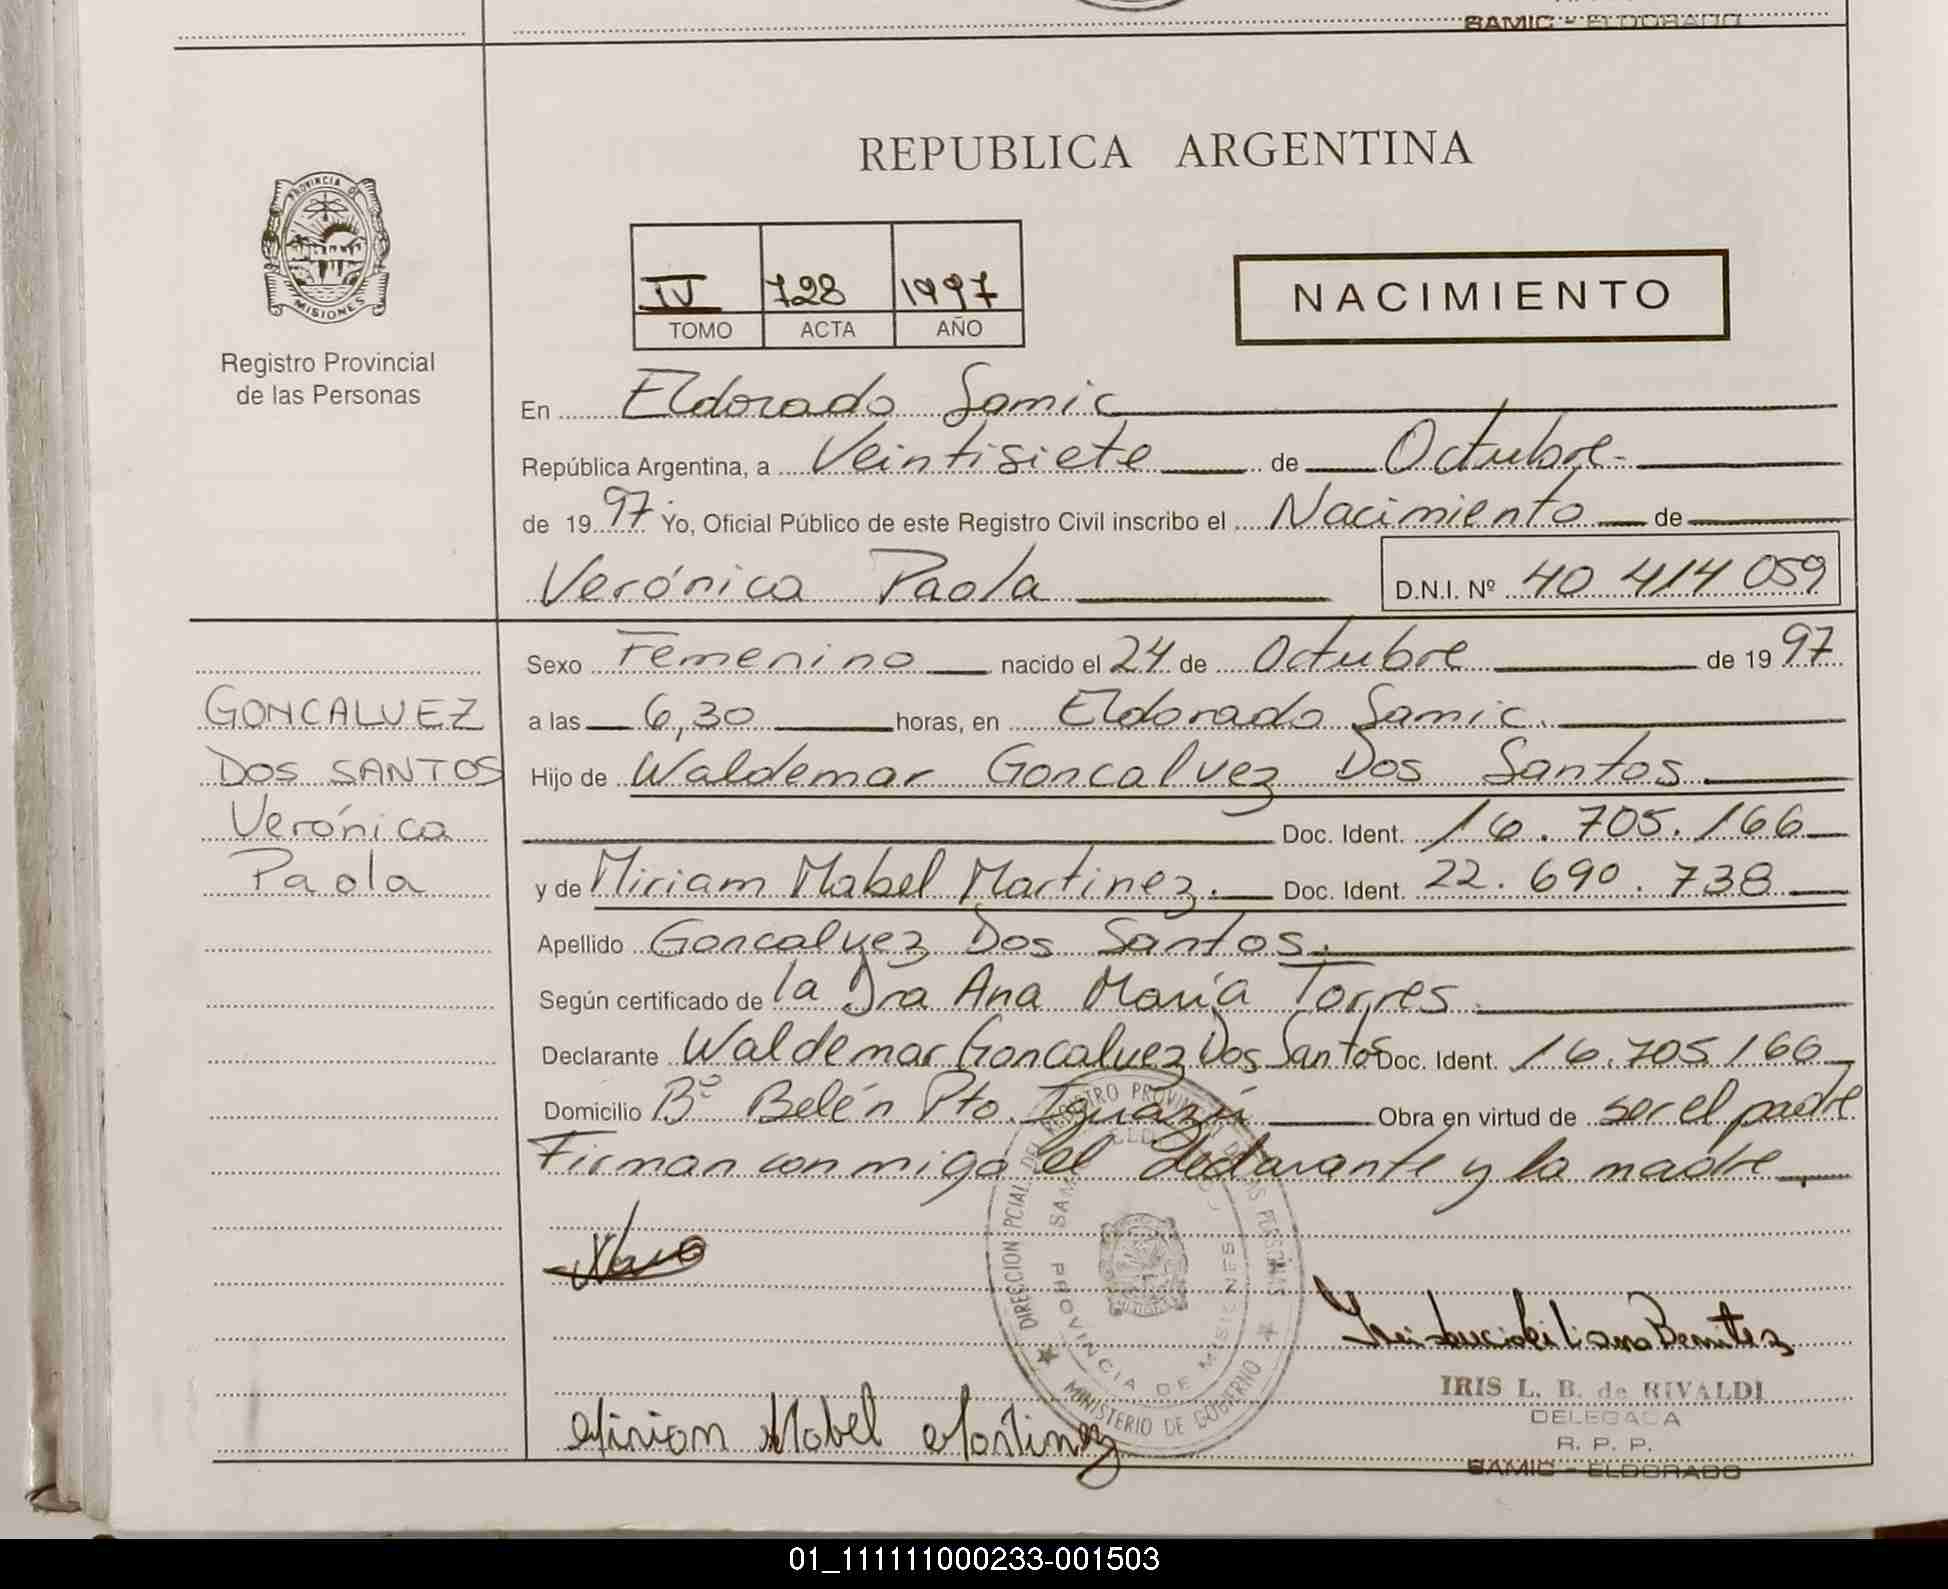 SAMIC - ELDORADO
REPUBLICA ARGENTINA
PROVINCIA DE
MISIONES
Registro Provincial
de las Personas
IV 728 1997
TOMO ACTA AÑO
NACIMIENTO
En Eldorado Samic
República Argentina, a Veintisiete de Octubre
de 1997 Yo, Oficial Público de este Registro Civil inscribo el Nacimiento de
Verónica Paola D.N.I. Nº 40 414 059
Sexo Femenino nacido el 24 de Octubre de 1997
GONCALVEZ
DOS SANTOS
Verónica
Paola
a las 6,30 horas, en Eldorado Samic.
Hijo de Waldemar Goncalvez Dos Santos
Doc. Ident. 16.705.166
y de Miriam Mabel Martinez. Doc. Ident. 22.690.738
Apellido Goncalvez Dos Santos.
Según certificado de la Dra Ana María Torres.
Declarante Waldemar Goncalvez Dos Santos Doc. Ident. 16.705166
Domicilio Bº Belén Pto. Iguazú Obra en virtud de ser el padre
Firman conmigo el declarante y la madre
DIRECCION PCIAL. DEL REGISTRO PROVINCIAL DE LAS PERSONAS
MINISTERIO DE GOBIERNO
PROVINCIA DE MISIONES
Benitez
IRIS L. B. de RIVALDI
DELEGADA
R. P. P.
SAMIC - ELDORADO
Mirian Mabel Martinez
01_111111000233-001503